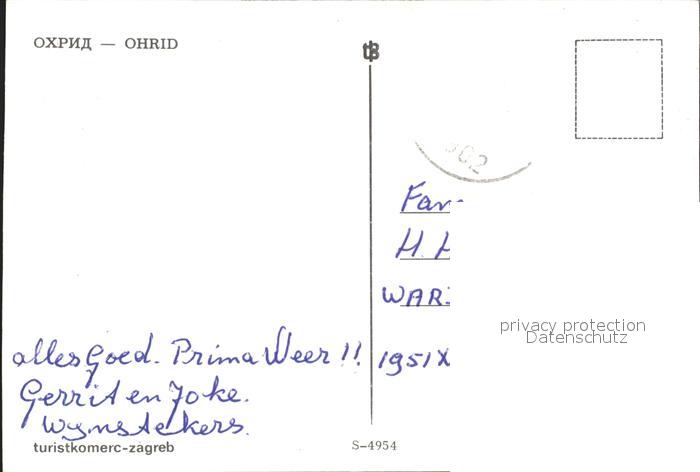 ОХРИД — OHRID
902
Fam
H. H
WAR
alles Goed. Prima Weer !!
1951 X
Gerrit en Joke.
Wynstekers.
turistkomerc-zagreb
S-4954
privacy protection
Datenschutz